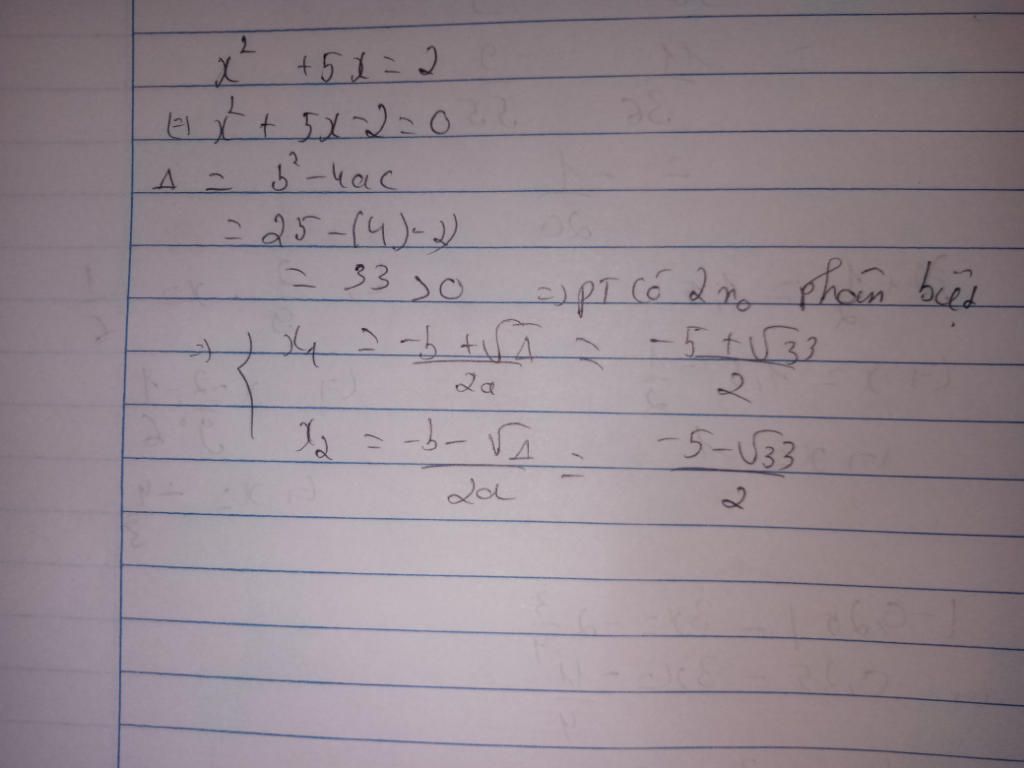 x² + 5x = 2
⇔ x² + 5x - 2 = 0
Δ = b² - 4ac
= 25 - (4) - 2)
= 33 > 0 ⇒ PT có 2 n₀ phân biệt
⇒ { x₁ = (-b + √Δ)/2a = (-5 + √33)/2
x₂ = (-b - √Δ)/2a = (-5 - √33)/2